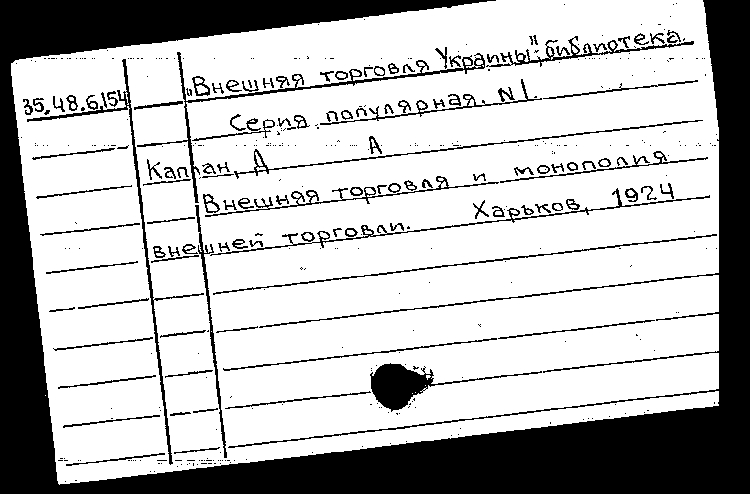 35.48.6.154 „Внешняя торговля Украины“; библиотека.
Серия популярная. N 1.
Каплан, Д А
Внешняя торговля и монополия
внешней торговли. Харьков, 1924